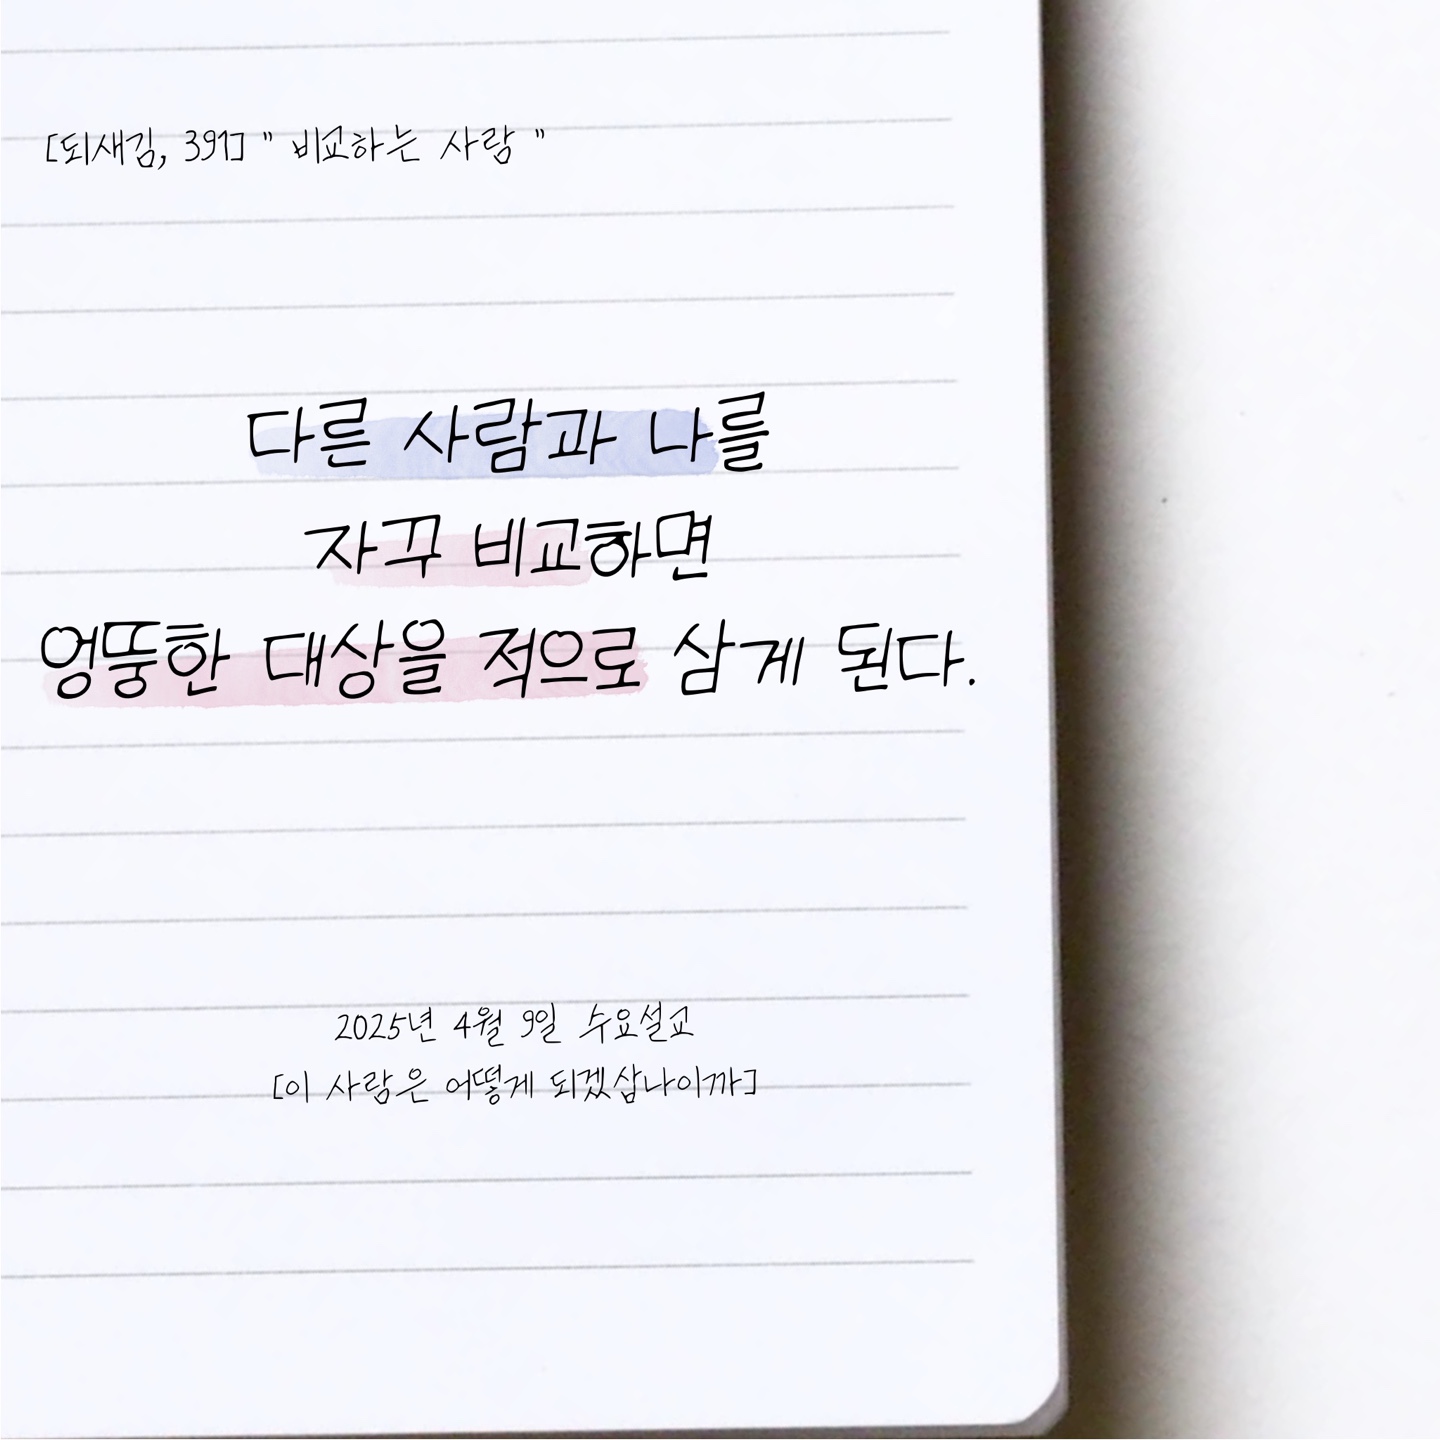 [되새김, 391] " 비교하는 사람 "
다른 사람과 나를
자꾸 비교하면
엉뚱한 대상을 적으로 삼게 된다.
2025년 4월 9일 수요설교
[이 사람은 어떻게 되겠삽나이까]